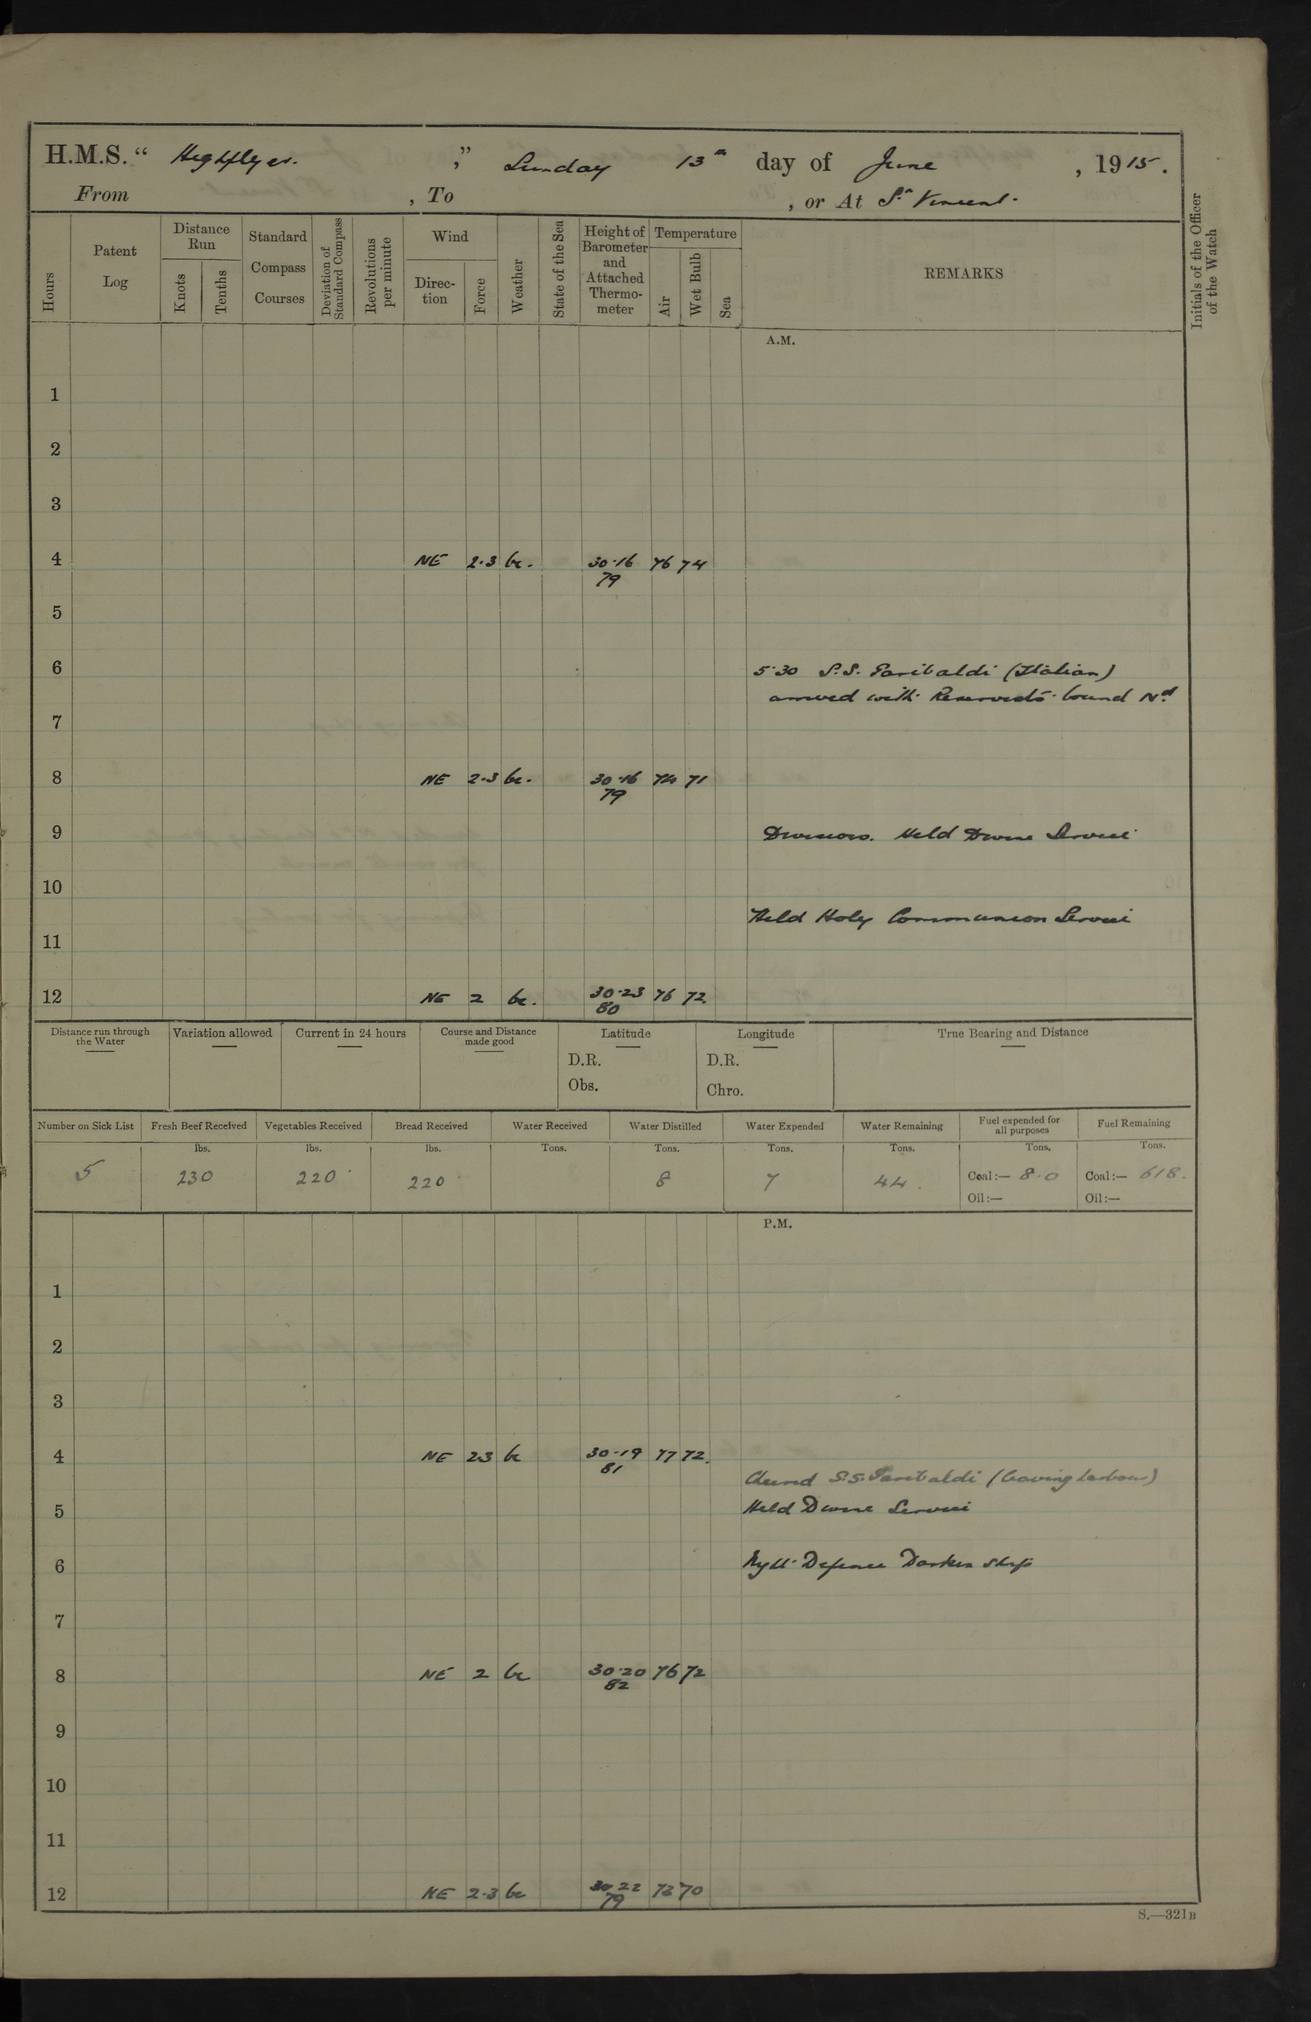 H.M.S. “ Highflyer. ,” Sunday 13th day of June , 1915.
From , To , or At St Vincent.
Hours
Patent Log
Distance Run
Knots
Tenths
Standard Compass Courses
Deviation of Standard Compass
Revolutions per minute
Wind
Direction
Force
Weather
State of the Sea
Height of Barometer and Attached Thermometer
Temperature
Air
Wet Bulb
Sea
REMARKS
Initials of the Officer of the Watch
A.M.
1
2
3
4 NE 2.3 bc. 30.16 76 74
79
5
6 5.30 S.S. Garibaldi (Italian)
arrived with Reservists bound Nd
7
8 NE 2.3 bc. 30.16 74 71
79
9 Divisions. Held Divine Service
10
Held Holy Communion Service
11
12 NE 2 bc. 30.23 76 72
80
Distance run through the Water
Variation allowed
Current in 24 hours
Course and Distance made good
Latitude
D.R.
Obs.
Longitude
D.R.
Chro.
True Bearing and Distance
Number on Sick List
Fresh Beef Received
Vegetables Received
Bread Received
Water Received
Water Distilled
Water Expended
Water Remaining
Fuel expended for all purposes
Fuel Remaining
lbs. lbs. lbs. Tons. Tons. Tons. Tons. Tons. Tons.
5 230 220 220 8 7 44. Coal:— 8.0 Coal:— 618.
Oil:— Oil:—
P.M.
1
2
3
4 NE 23 bc 30.19 77 72.
81
Cheered S.S. Garibaldi (leaving harbour)
5 Held Divine Service
6 Night Defence Darken Ship
7
8 NE 2 bc 30.20 76 72
82
9
10
11
12 NE 2.3 bc 30.22 73 70
79
S.—321B